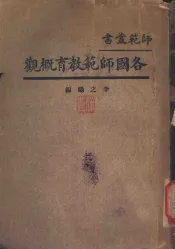 師範叢書
各國師範教育概觀
李之鷗編